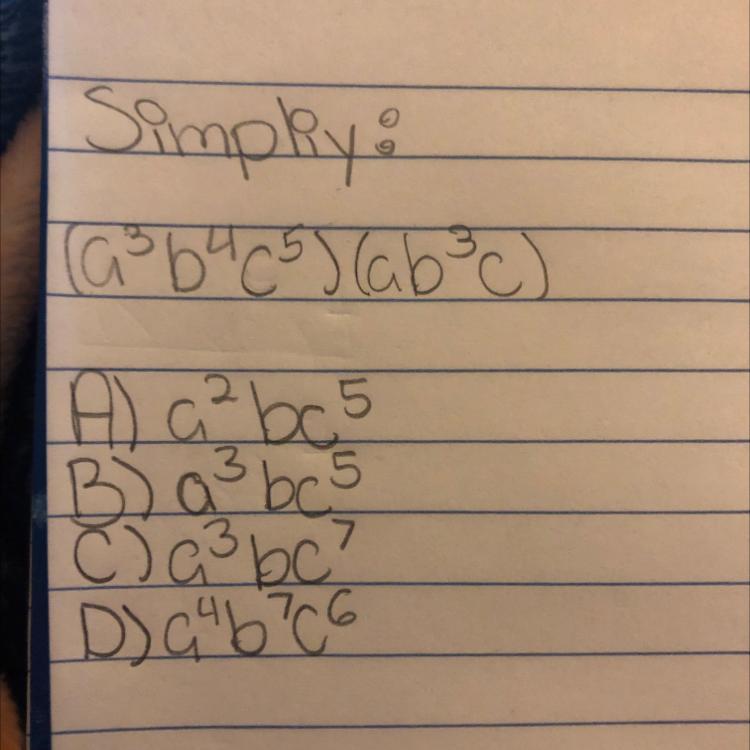 Simpliy:
(a³b⁴c⁵)(ab³c)
A) a² bc⁵
B) a³ bc⁵
C) a³ bc⁷
D) a⁴b⁷c⁶